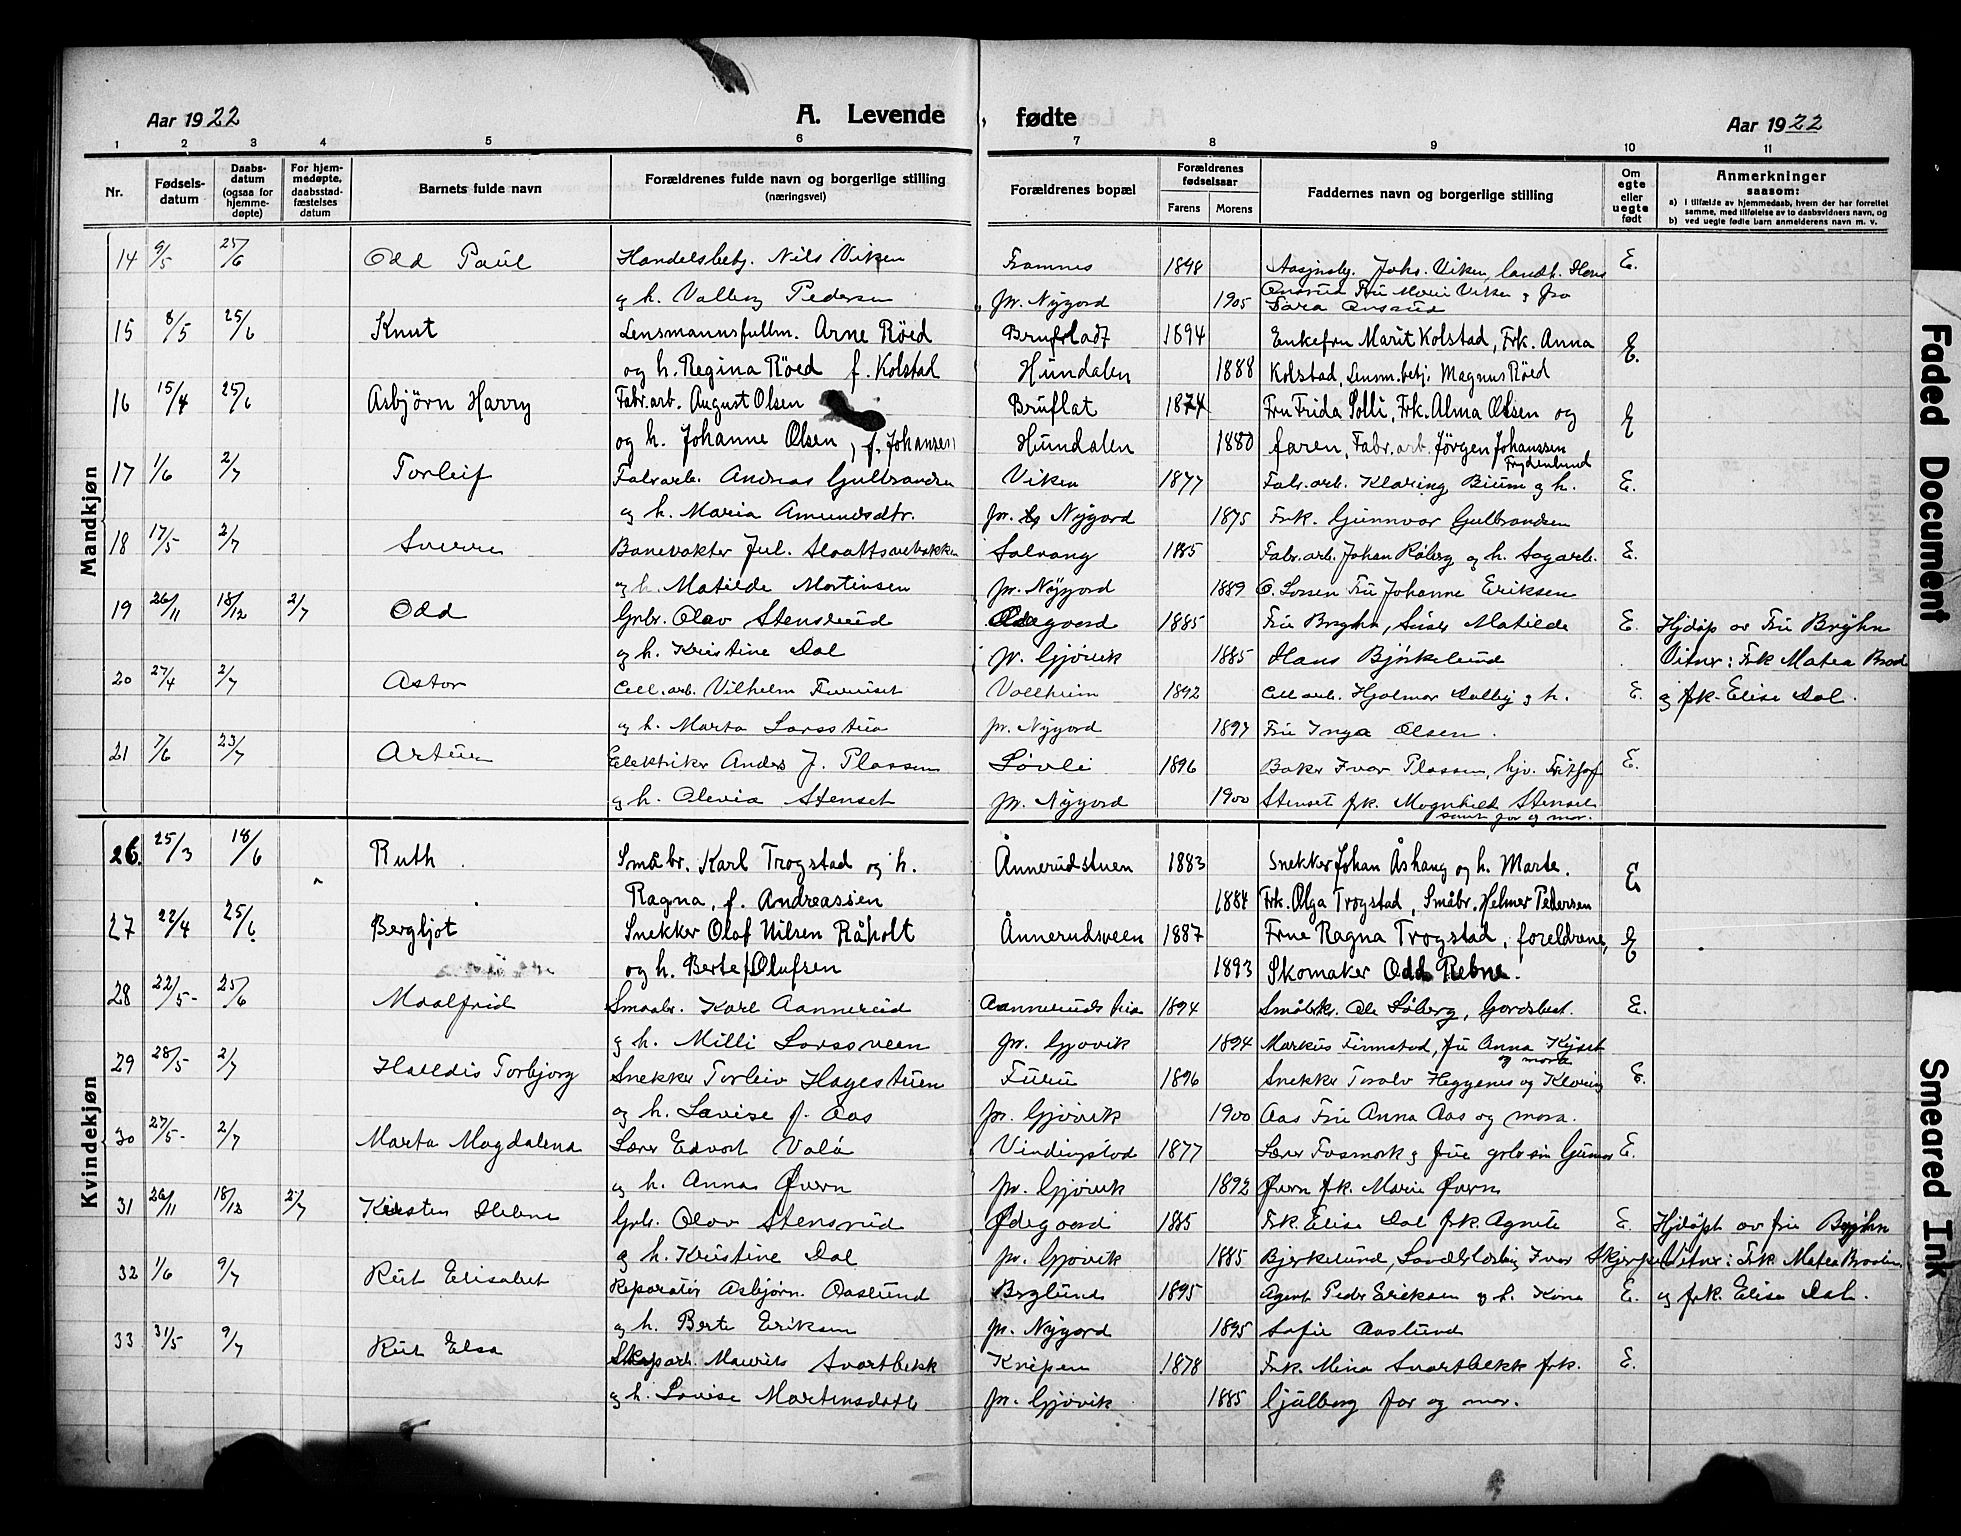 Aar 1922
A. Levende fødte
Aar 1922
1 2 3 4 5 6 7 8 9 10 11
Nr.
Fødsels-
datum
Daabs-
datum
(ogsaa for
hjemme-
døpte)
For hjem-
medøpte,
daabsstad-
fæstelses
datum
Barnets fulde navn
Forældrenes fulde navn og borgerlige stilling
(næringsvei)
Forældrenes bopæl
Forældrenes
fødselsaar
Farens Morens
Faddernes navn og borgerlige stilling
Om
egte
eller
uegte
født
Anmerkninger
saasom:
a) I tilfælde av hjemmedaab, hvem der har forrettet
samme, med tilføielse av to daabsvidners navn, og
b) ved uegte fødte barn anmelderens navn m. v.
Mandkjøn
14 9/5 25/6 Odd Paul Handelsbetj. Nils Viken Framnes 1898 Johs. Viken, landh. Hans E.
og h. Valborg Pedersen pr. Nygord 1905 Fru Marie Viken og
Sara
15 8/5 25/6 Knut Lensmannsfullm. Arne Röed Brufladt 1894 Enkefru Marit Kolstad, Frk. Anna E.
og h. Regina Röed f. Kolstad Hundalen 1888 Kolstad, Lensm.betj. Magnus Röed
16 15/4 25/6 Asbjørn Harry Fabr.arb. August Olsen Bruflat 1874 Fru Frida Solli, Frk. Alma Olsen og E
og h. Johanne Olsen, f. Johansen Hundalen 1880 faren, Fabr.arb. Jørgen Johanssen
Frydenlund
17 1/6 2/7 Torleif Fabr.arb. Andreas Gulbrandsen Viken 1877 Fabr.arb. Klaring Bium og h. E.
og h. Maria Amundsdtr. pr. Nygord 1875 Frk. Gunnvor Gulbrandsen
18 17/5 2/7 Sverre Banevokter Jul. Slaattsvebakken Solvang 1885 Fabr.arb. Johan Röberg og h. Sagarb. E.
og h. Matilde Mortinsen pr. Nygord 1889 O. Larsen Fru Johanne Eriksen
19 26/11 18/12 2/7 Odd Grbr. Olav Stensrud Ødegaard 1885 Fru Bryhn, Matilde E. Hjdöp av Fru Bryhn
og h. Kristine Dal pr. Gjövik 1885 Hans Björkelund Vitner: Frk Matea
20 27/4 2/7 Astor Cell.arb. Vilhelm Furuset Vollheim 1892 Cell arb. Hjalmar Dalby og h. E. og frk. Elise Dal.
og h. Marta Larsstua pr. Nygord 1897 Fru Inga Olsen.
21 7/6 23/7 Artur Elektriker Anders J. Plassen Lövli 1896 Baker Ivar Plassen, hjv. Fritjof E.
og h. Olevia Stenset pr. Nygord 1900 Stenset frk. Magnhild Stenset
samt far og mor.
Kvindekjøn
26. 25/3 18/6 Ruth. Småbr. Karl Trogstad og h. Ånnerudstuen 1883 Snekker Johan Åshaug og h. Marte. E
Ragna, f. Andreassen 1884 Frk. Olga Trogstad, Småbr. Helmer Pedersen
27 22/4 25/6 Bergljot Snekker Olaf Nilsen Råholt Ånnerudsveen 1887 Frue Ragna Trogstad, foreldrene, E
og h. Berte f. Olufsen 1893 Skomaker Odd Rebne.
28 22/5- 25/6 Maalfrid Smaabr. Karl Aannerud Aanneruds 1894 Småbrk. Ole Söberg, Gardsbest. E.
og h. Milli Larssveen pr. Gjøvik 1894 Markus Finnstad, fru Anna
og mora
29 28/5- 2/7 Halldis Torbjorg Snekker Torleiv Hagestuen Furu 1896 Snekker Toralv Heggenes og Klaring E.
og h. Lovise f. Aas pr. Gjövik 1900 Aas Fru Anna Aas og mora.
30 27/5- 2/7 Marta Magdalena Lærer Edvart Valö Vindingstad 1877 Lærer Fosmork og frue Gunnar E.
og h. Anna Øvern pr. Gjövik 1892 Øvern frk. Marie Øvern
31 26/11 18/12 2/7 Kirsten Helene Grb. Olav Stensrud Ødegaard 1885 Frk. Elise Dal frk. Agnete E. Hjdöpt av fru Bryhn
og h. Kristine Dal pr. Gjøvik 1885 Bjerkelund, Ivar Vitner: Frk Matea
32 1/6 9/7 Rut Elisabet Reparatör Asbjørn Aaslund Berglund 1895 Agent Peder Eriksen og h. Kona E. og frk. Elise Dal.
og h. Berte Eriksen pr. Nygord 1895 Sofie Aaslund
33 31/5 9/7 Rut Elsa Maurits Svartbekk Knipen 1878 Frk. Mina Svartbekk frk. E.
og h. Lovise Martinsdatter pr. Gjövik 1885 Gjulborg far og mor.
Faded Document
Smeared Ink